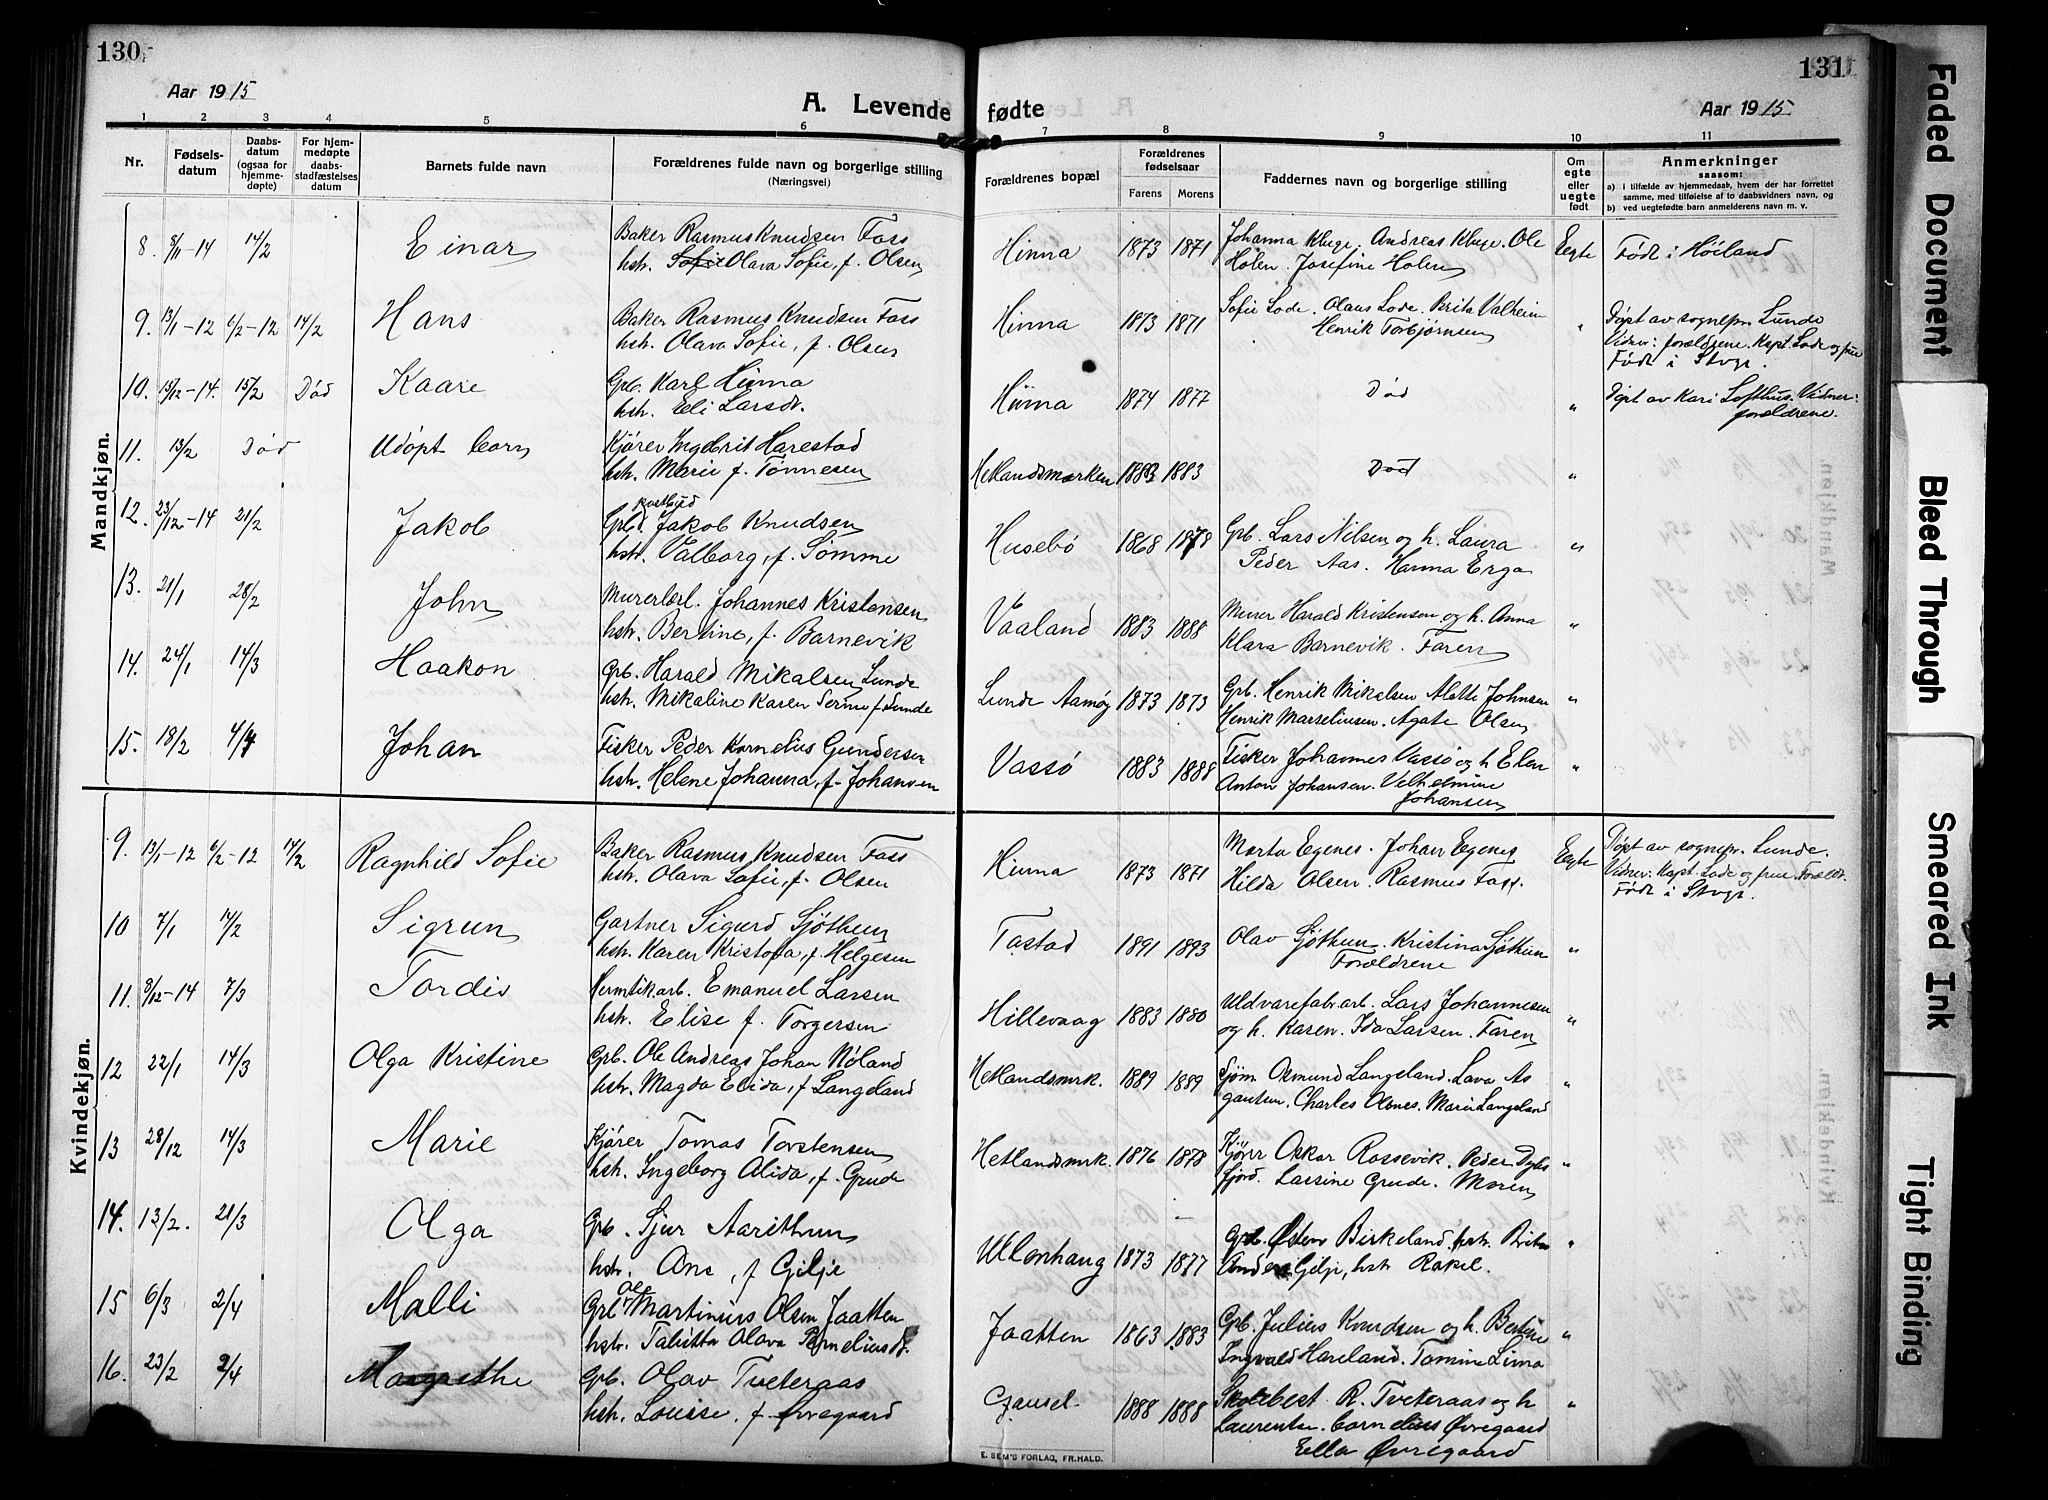 130
131
Aar 1915
A. Levende fødte
Aar 1915
1 2 3 4 5 6 7 8 9 10 11
Nr. Fødselsdatum Daabsdatum (ogsaa for hjemmedøpte) For hjemmedøpte daabsstadfæstelses datum Barnets fulde navn Forældrenes fulde navn og borgerlige stilling (Næringsvei) Forældrenes bopæl Forældrenes fødselsaar Farens Morens Faddernes navn og borgerlige stilling Om egte eller uegte født Anmerkninger saasom:
a) i tilfælde av hjemmedaab, hvem der har forrettet samme, med tilføielse af to daabsvidners navn, og
b) ved uegtefødte barn anmelderens navn m. v.
Mandkjøn.
8. 8/11-14 14/2 Einar Baker Rasmus Knudsen Foss Hinna 1873 1871 Johanna Kluge. Andreas Kluge. Ole Egte Født i Høiland
hstr. Sofie Olava Sofie, f. Olsen Holen. Josefine Holen
9. 13/1-12 6/2-12 14/2 Hans Baker Rasmus Knudsen Foss Hinna 1873 1871 Sofie Lode. Olaus Lode. Brita Valheim " Døpt av sognepr. Lunde
hstr. Olava Sofie, f. Olsen Henrik Torbjørnsen Vidner: forældrene. Kapt. Lode og frue
Født i Stvgr.
10. 15/12-14. 15/2 Død Kaare Gpb. Karl Hinna Hinna 1874 1877 Død " Døpt av Kari Lofthus. Vidner:
hstr. Eli Larsdt. forældrene.
11. 13/2 Død Udøpt barn Kjører Ingebrit Harestad Hetlandsmarken 1883 Død "
hstr. Marie f. Tønnesen
12. 23/12-14 21/2 Jakob Gpb. postbud Jakob Knudsen Husebø 1868 1878 Gpb. Lars Nilsen og h. Laura "
hstr. Valborg, f. Sømme Peder Aas. Hanna Erga
13. 21/1 28/2 John Murerarb. Johannes Kristensen Vaaland 1883 1888 Murer Harald Kristensen og h. Anna "
hstr. Bertine, f. Barnevik Klara Barnevik. Faren
14. 24/1 14/3 Haakon Gpb. Harald Mikalsen Lunde Lunde Aamøy 1873 1873 Gpb. Henrik Mikalsen Alette Johnsen "
hstr. Mikaline Karen Serine f. Lunde Henrik Marseliusen. Agate Olsen
15. 18/2 4/4 Johan Fisker Peder Kornelius Gundersen Vassø 1883 1888 Fisker Johannes Vassø og h Elen "
hstr. Helene Johanna, f. Johansen Anton Johansen. Velhelmine
Johansen
Kvindekjøn.
9. 13/1-12 6/2-12 14/2 Ragnhild Sofie Baker Rasmus Knudsen Foss Hinna 1873 1871 Marta Egenes. Johan Egenes Egte Døpt av sognepr. Lunde.
hstr. Olava Sofie, f. Olsen Hilda Olsen. Rasmus Foss. Vidner: Kapt. Lode og frue. Forældr.
Født i Stvgr.
10 7/1 14/2 Sigrun Gartner Sigurd Sjøthun Tastad 1891 1893 Olav Sjøthun. Kristina Sjøthun "
hstr. Karen Kristofa, f. Helgesen Forældrene
11. 8/12-14 7/3 Tordis Hermtikarb. Emanuel Larsen Hillevaag 1883 1880 Uldvarefabr.arb. Lars Johannesen "
hstr. Elise f. Torgersen og h. Karen. Ida Larsen. Faren
12 22/1 14/3 Olga Kristine Gpb. Ole Andreas Johan Nøland Hetlandsmrk. 1889 1889 Sjøm. Osmund Langeland. Lava As
hstr. Magda Elida, f Langeland gautsen. Charles Olsnes. Marie Langeland
13 28/12 14/3 Marie Kjører Tomas Torstensen Hetlandsmrk. 1876 1878 Kjører Oskar Rossevik. Peder Dybs "
hstr. Ingeborg Alida, f. Grude fjord. Larsine Grude. Moren
14. 13/2. 21/3 Olga Gpb. Sjur Aarithun Ullenhaug 1873 1877 Gpb. Østen Birkeland, hstr. Brita "
hstr. Ane, f Gilje Anders Gilje, hstr Rakel.
15 6/3 2/4 Malli Gpb. Ole Martinius Olsen Jaatten Jaatten 1863 1883 Gpb. Julius Knudsen og h. Bertine "
hstr. Tabitta Olava Korneliusdt. Ingvald Hareland. Tomine Lima
16. 23/2 2/4 Margrethe Gpb. Olav Tveteraas Gausel 1888 1888 Skolebest R. Tveteraas og h "
hstr. Lousse, f. Øvregaard Laurentse. Cornelius Øvregaard
Ella Øvregaard
E. SEM'S FORLAG, FR.HALD.
Faded Document
Bleed Through
Smeared Ink
Tight Binding